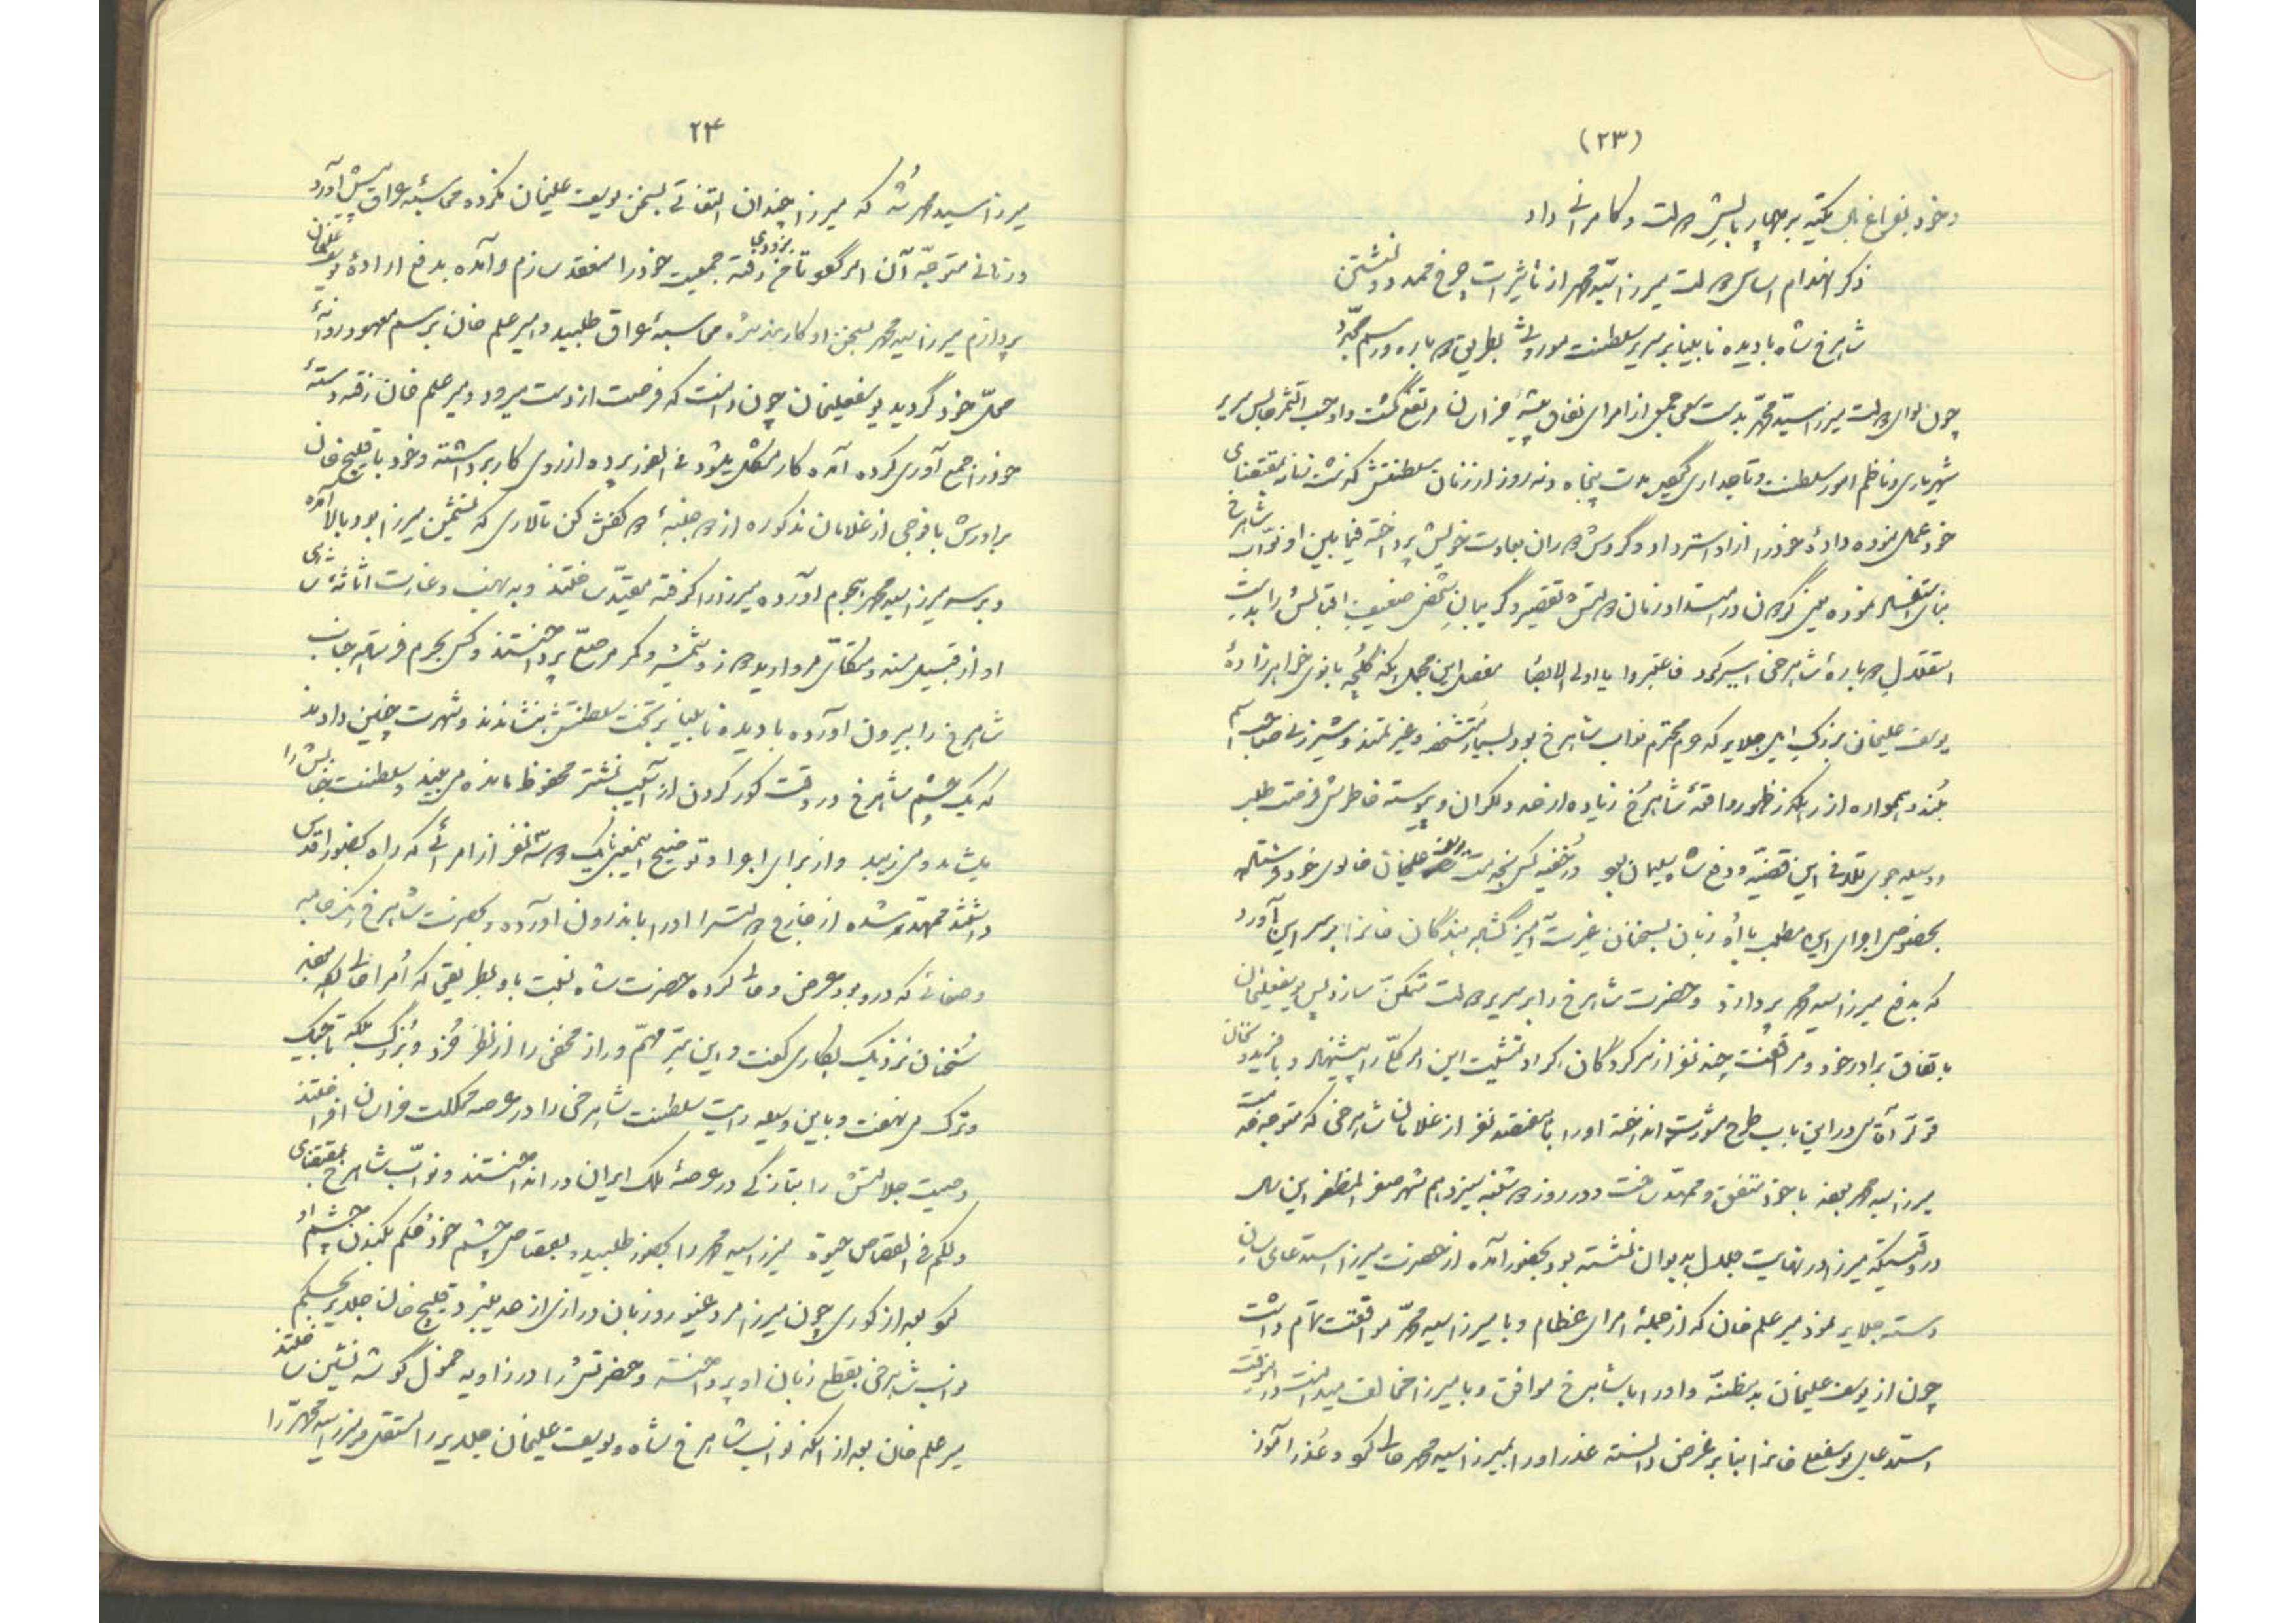 (۲۳)
و خود بفراغ بال تکیه بر چهار بالش دولت و کامرانی داد
ذکر انهدام اساس دولت میرزا سید محمد از تأثیرات چرخ و نشستن
شاهرخ شاه با دیده نابینا بر سریر سلطنت موروثی بطریق دوباره و رسم مجدد
چون لوای دولت میرزا سید محمد بدست سعی جمعی از امرای نفاق پیشه خراسان مرتفع گشت و او جالس سریر
شهریاری و ناظم امور سلطنت و تاجداری گردید مدت پنجاه و نه روز از زمان سلطنتش گذشت زمانه بمقتضای
خود عمل نموده دادۀ خود را از او استرداد و گردش دوران بعادت خویش پرداخته فیما بین او و نواب شاهرخ
نموده یعنی در امتداد زمان دولتش تقصیر و گریبان شخص ضعیف اقبالش را بدست
استقلال دوبارۀ شاهرخی اسیر کرد فاعتبروا یا اولی الابصار مفصل این مجمل اینکه بانوی خواهرزادۀ
یوسف علیخان بزرگ ایل جلایر که حرم محترم نواب شاهرخ بود بسیار متشخصه و غیرتمند و شیرزنی صاحب اسم
بلند و همواره از رهگذر ظهور واقعۀ شاهرخ زیاده از حد دلگران و پیوسته خاطرش فرصت طلب
و وسیله جوی تلافی این قضیه و دفع شاه سلیمان بود در خفیه کس نزد یوسف علیخان خالوی خود فرستاده
بخصوص اجرای این مطلب با او زبان بسخنان غیرت آمیز گشاید بندگان خانرا بر سر این آورد
که بدفع میرزا سید محمد پردازد و حضرت شاهرخ را بر سریر دولت متمکن سازد پس یوسفعلیخان
باتفاق برادر خود و مرافقت چند نفر از سرکردگان اکراد تمشیت این امر کلی را پیشنهاد و با فریدونخان
قوللر آقاسی در این باب طرح مشورت انداخته او را با هفتصد نفر از غلامان شاهرخی که متوجه خدمت
میرزا سید محمد بودند با خود متفق و ساخت و در روز دوشنبه سیزدهم شهر صفر المظفر این سال
در وقتیکه میرزا در نهایت جلال بدیوان نشسته بود بحضور آمده از حضرت میرزا استدعای سان
دسته جلایر نمود میر علم خان که از جملۀ امرای عظام و با میرزا سید محمد موافقت تمام داشت
چون از یوسف علیخان بدمظنه و او را با شاهرخ موافق و با میرزا مخالف میدانست در آنوقت
استدعای یوسفعلیخانرا بنا بر غرض دانسته عذر او را بمیرزا سید محمد حالی کرد و عذر آموز
۲۴
میرزا سید محمد شد که میرزا چندان التفاتی بسخن یوسف علیخان نکرده محاسبۀ عراق پیش آورد
و زمانی متوجه آن امر گردد تا من رفته بزودی جمعیت خود را منعقد سازم و آمده بدفع ارادۀ یوسفعلیخان
پردازم میرزا سید محمد بسخن او کاربند شده محاسبۀ عراق طلبید و امیر علم خان برسم معهود روانۀ
محل خود گردید یوسفعلیخان چون دانست که فرصت از دست میرود و میر علم خان رفته دستۀ
خود را جمع آوری کرده آمده کار مشکل میشود فی الفور پرده از روی کار برداشته و خود با قلیچ خان
برادرش با فوجی از غلامان مذکوره از دو جنبۀ در کفش کن تالاری که نشیمن میرزا بود بالا آمده
و بر سر میرزا سید محمد هجوم آورده میرزا را گرفته مقید ساختند و به نهب و غارت اثاثۀ شاهی
او از قبیل مسند و متکای مروارید دوز و شمشیر و کمر مرصع پرداختند و کس بحرم فرستاده جناب
شاهرخ را بیرون آورده با دیده نابینا بر تخت سلطنتش بنشاندند و شهرت چنین دادند
که یک چشم شاهرخ در وقت کور کردن از آسیب نشتر محفوظ مانده می بیند و سلطنت جنابش را
میشد و می زیبد و از برای اجرا و توضیح اینمعنی یک دو سه نفر از امرائی که راه بحضور اقدس
داشتند شده از خارج دولتسرا او را باندرون آورده و بحضرت شاهرخ
و صفاتی که در او بود عرض و حالی کرده حضرت شاه نسبت باو بطریقی که امرا حالی کرده بودند
سخنان نزدیک بکار می گفت و این سر مهم و راز مخفی را از نظر خورد و بزرگ بلکه تاجیک
و ترک می نهفت و باین وسیله رایت سلطنت شاهرخی را در عرصه مملکت خراسان افراختند
و صیت جلالتش را بتازگی در عرصۀ ملک ایران در انداختند و نواب شاهرخ بمقتضای
و لکم فی القصاص حیوة میرزا سید محمد را بحضور طلبیده بقصاص چشم خود حکم بکندن چشم او
کرد بعد از کوری چون میرزا مرد غیور و زبان درازی از حد میبرد قلیچ خان جلایر بحکم
نواب شاهرخی بقطع زبان او پرداخته و حضرتش را در زاویه خمول گوشه نشین ساختند
میر علم خان بعد از آنکه نواب شاهرخ شاه و یوسف علیخان جلایر را مستقل و میرزا سید محمد را